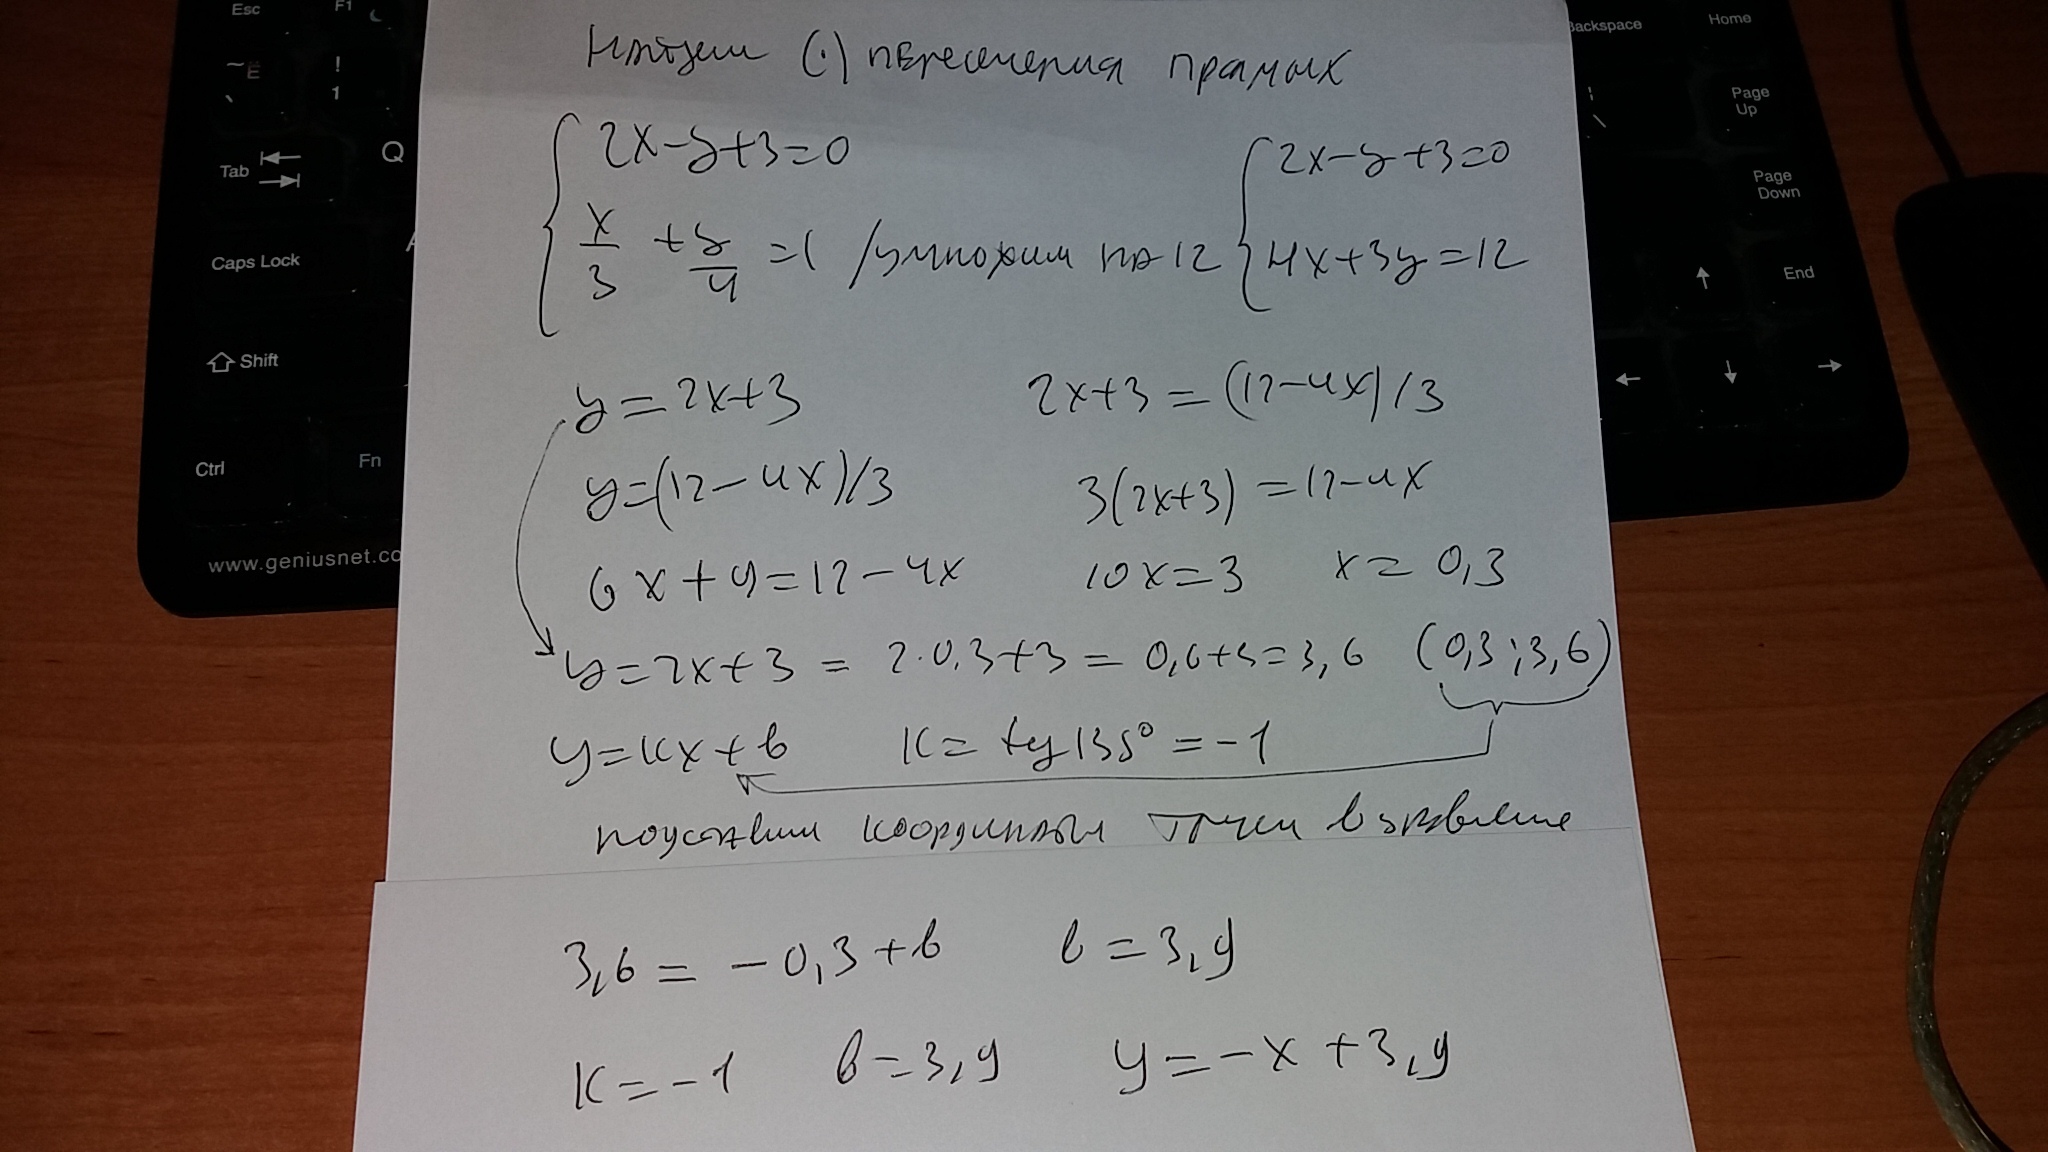 Esc F1
Backspace Home
~ Ё ! 1
Page Up
Tab Q
Page Down
Caps Lock
End
Shift
Ctrl Fn
www.geniusnet.co
Найдем (·) пересечения прямых
2x-y+3=0 2x-y+3=0
x/3 + y/4 = 1 /умножим на 12 4x+3y=12
y=2x+3 2x+3=(12-4x)/3
y=(12-4x)/3 3(2x+3)=12-4x
6x+9=12-4x 10x=3 x=0,3
y=2x+3=2·0,3+3=0,6+3=3,6 (0,3;3,6)
y=kx+b k=tg135°=-1
подставим координаты точки в уравнение
3,6=-0,3+b b=3,9
k=-1 b=3,9 y=-x+3,9